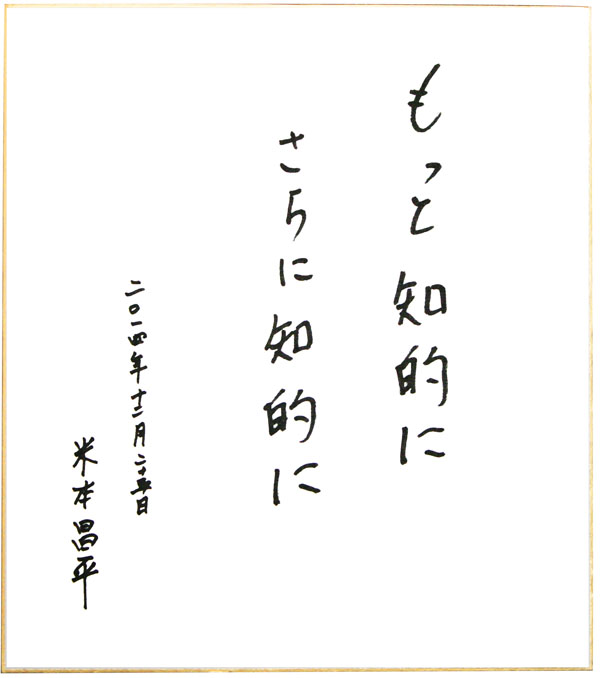 もっと知的に
さらに知的に
二〇一四年十二月二十五日
米本昌平